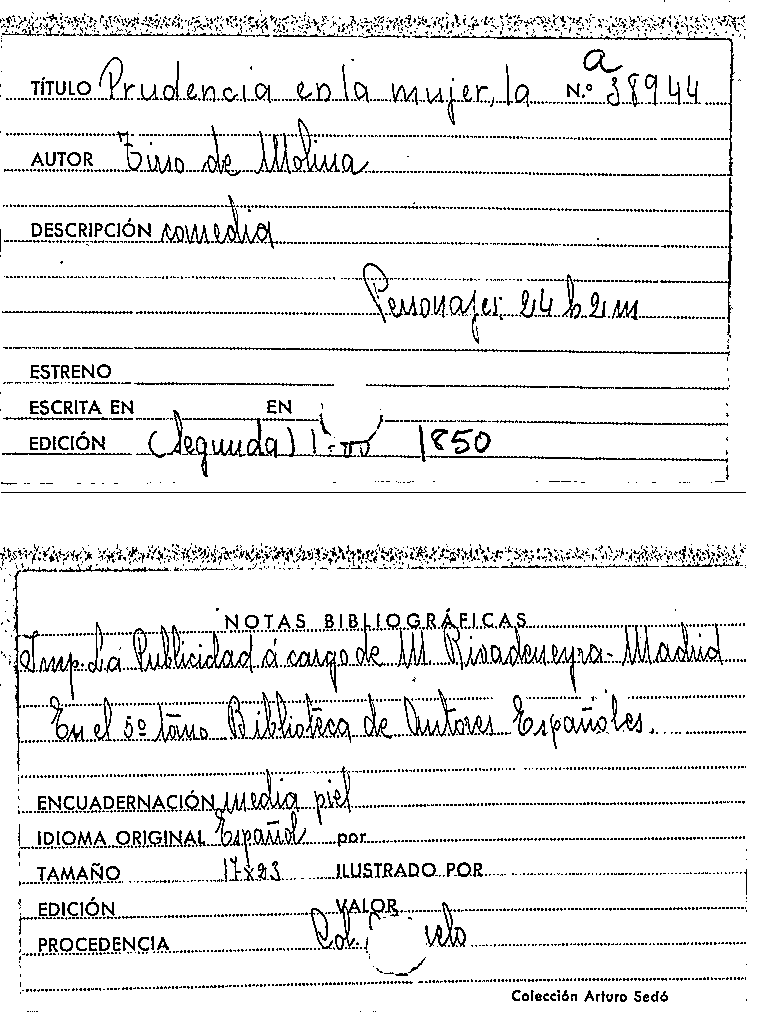 a
TÍTULO Prudencia en la mujer, la N.º 38944
AUTOR Tirso de Molina
DESCRIPCIÓN comedia
Personajes: 24 h 2 m
ESTRENO
ESCRITA EN EN
EDICIÓN (Segunda) 1850
NOTAS BIBLIOGRÁFICAS
Imp. La Publicidad á cargo de M. Rivadeneyra - Madrid
En el 5º tomo Biblioteca de Autores Españoles.
ENCUADERNACIÓN media piel
IDIOMA ORIGINAL Español por
TAMAÑO 17x23 ILUSTRADO POR
EDICIÓN VALOR
PROCEDENCIA Col.
Colección Arturo Sedó